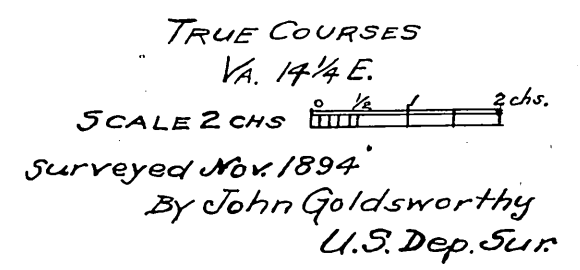 TRUE COURSES
VA. 14 1/4 E.
0 1/2 1 2 chs.
SCALE 2 CHS
Surveyed Nov. 1894
By John Goldsworthy
U.S. Dep. Sur.